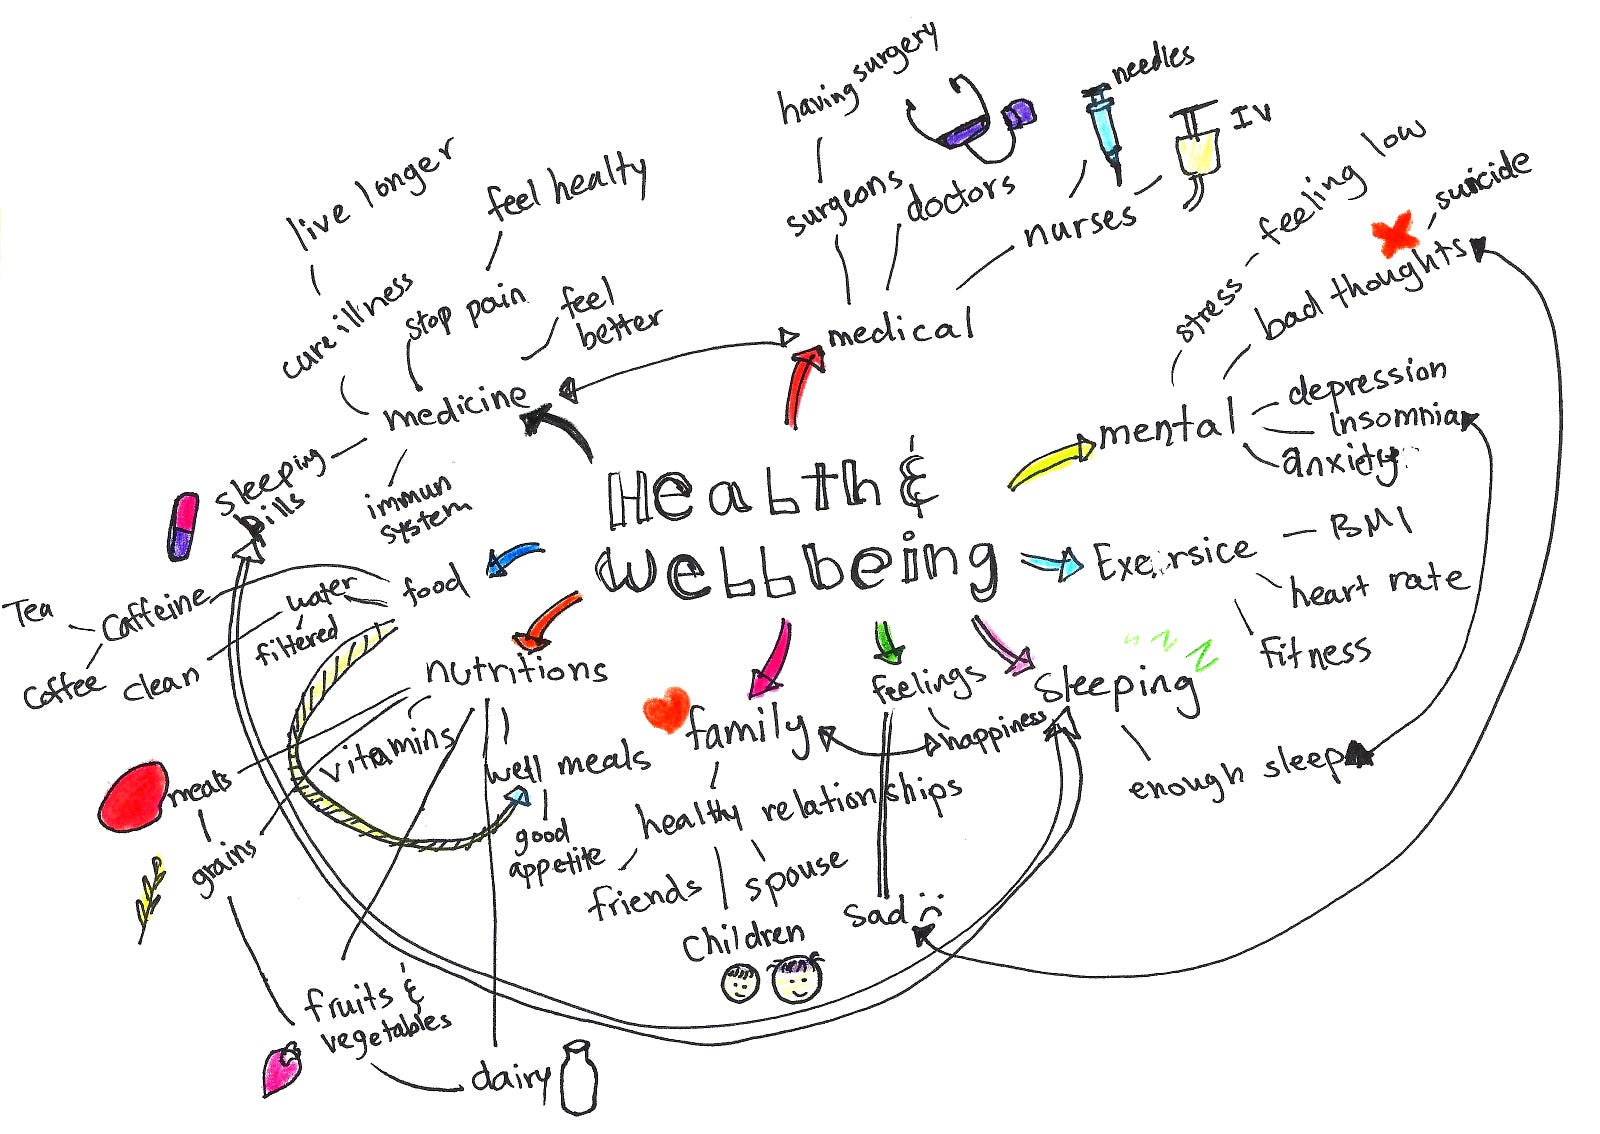 Health &
Wellbeing
medical
surgeons
having surgery
doctors
nurses
needles
IV
mental
stress
feeling low
bad thoughts
suicide
depression
Insomnia
anxiety
Exersice
BMI
heart rate
fitness
Sleeping
enough sleep
feelings
happiness
sad
family
healthy relationships
friends
children
spouse
nutritions
well meals
good
appetite
vitamins
meats
grains
fruits &
vegetables
dairy
food
water
filtered
clean
Caffeine
Tea
Coffee
medicine
cure illness
live longer
stop pain
feel healty
feel
better
immun
system
sleeping
pills